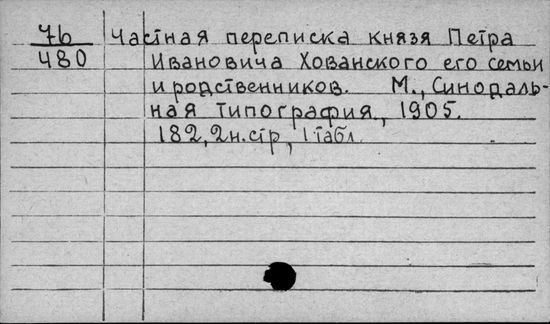 76 Частная переписка князя Петра
480 Ивановича Хованского его семьи
и родственников. М., Синодаль-
ная типография, 1905.
182, 2н.стр, 1 табл.